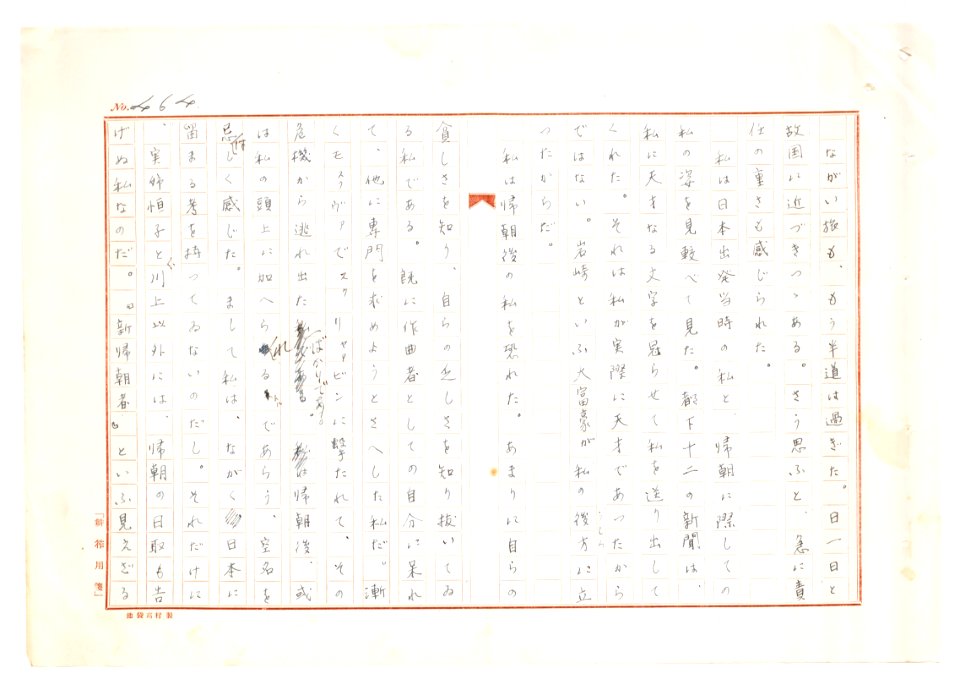 No. 464
ながい旅も、もう半道は過ぎた。日一日と
故国に近づきつゝある。さう思ふと、急に責
任の重さも感じられた。
私は日本出発当時の私と、帰朝に際しての
私の姿を見較べて見た。都下十二の新聞は、
私に天才なる文字を冠らせて私を送り出して
くれた。それは私が実際に天才であつたから
ではない。岩崎といふ大富豪が私の後方に立
つたからだ。
私は帰朝後の私を恐れた。あまりに自らの
貪しさを知り、自らの乏しさを知り抜いてゐ
る私である。既に作曲者としての自分に呆れ
て、他に専門を求めようとさへした私だ。漸
くモスクワでスクリャアビンに撃たれて、その
危機から逃れ出たばかりである。私は帰朝後、或
は私の頭上に加へられるであらう、空名を
忌はしく感じた。まして私は、ながく日本に
留まる考を持つてゐないのだし。それだけに
、実姉恒子と川上以外には、帰朝の日取も告
げぬ私なのだ。『新帰朝者』といふ見えざる